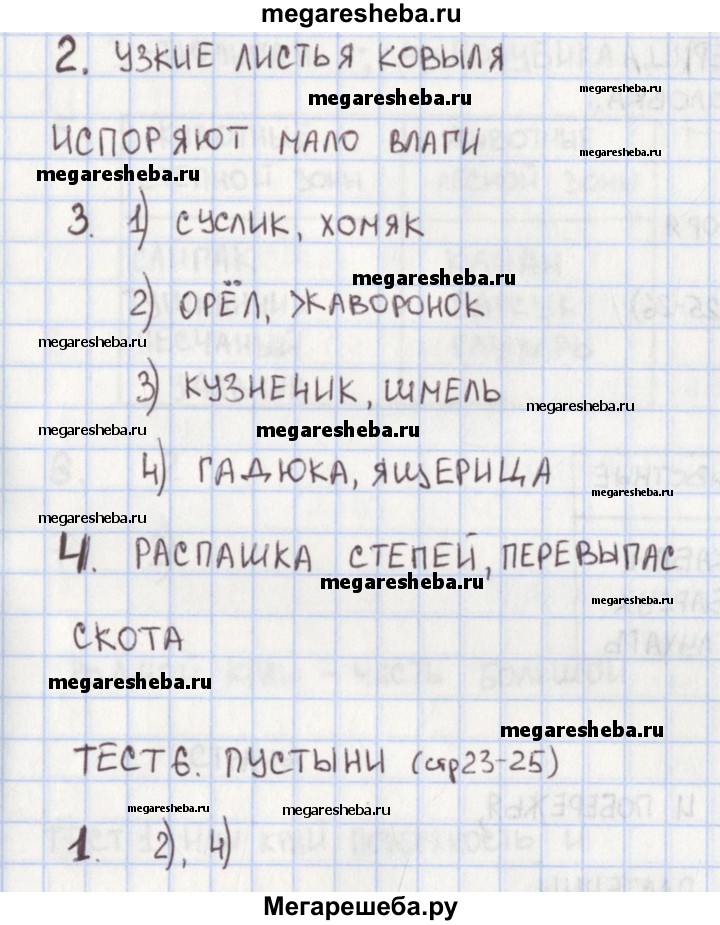 megaresheba.ru
2. УЗКИЕ ЛИСТЬЯ КОВЫЛЯ
megaresheba.ru
megaresheba.ru
ИСПОРЯЮТ МАЛО ВЛАГИ
megaresheba.ru
megaresheba.ru
3. 1) СУСЛИК, ХОМЯК
megaresheba.ru
2) ОРЁЛ, ЖАВОРОНОК
megaresheba.ru
megaresheba.ru
3) КУЗНЕЧИК, ШМЕЛЬ
megaresheba.ru
megaresheba.ru
megaresheba.ru
4) ГАДЮКА, ЯЩЕРИЦА
megaresheba.ru
megaresheba.ru
4. РАСПАШКА СТЕПЕЙ, ПЕРЕВЫПАС
megaresheba.ru
megaresheba.ru
СКОТА
megaresheba.ru
megaresheba.ru
ТЕСТ 6. ПУСТЫНИ (стр23-25)
megaresheba.ru
megaresheba.ru
1. 2), 4)
Мегарешеба.ру